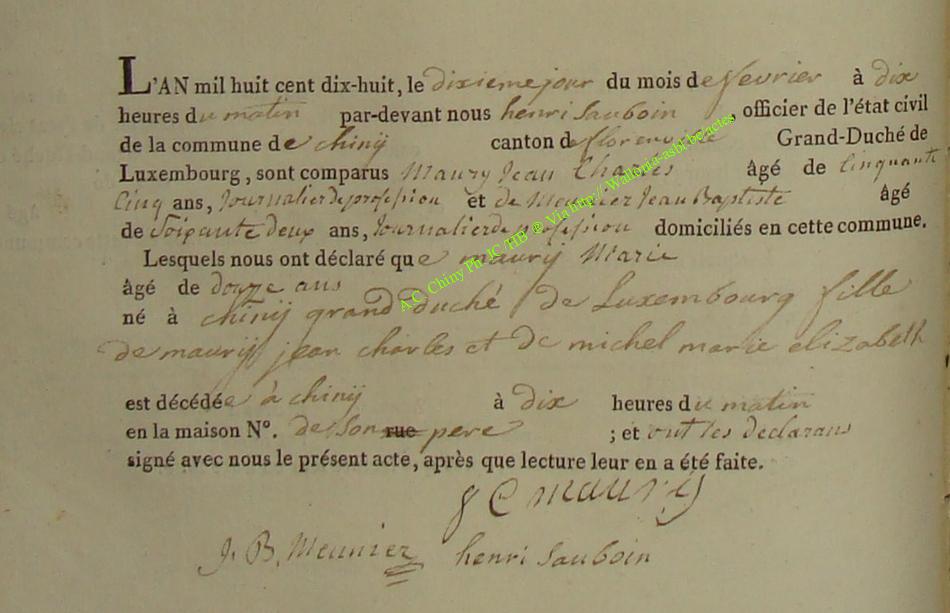 L'AN mil huit cent dix-huit, le dixieme jour du mois de fevrier à dix
heures du matin par-devant nous henri Sauboin, officier de l'état civil
de la commune de chinÿ canton de florenville Grand-Duché de
Luxembourg, sont comparus Maury Jean Charles âgé de Cinquante
Cinq ans, Journalier de profession et de Meunier Jean Baptiste âgé
de Soixante deux ans, Journalier de profession domiciliés en cette commune.
Lesquels nous ont déclaré que maurÿ Marie
âgé de douze ans
né à chinÿ grand duché de Luxembourg fille
de maurÿ jean charles et de michel marie elizabeth
est décédée à chinÿ à dix heures du matin
en la maison N°. de son rue pere ; et ont les declarans
signé avec nous le présent acte, après que lecture leur en a été faite.
J C maurÿ
J. B, Meunier henri Sauboin
A.C. Chiny Ph JC /HB ® Via http// Wallonia-asbl.be/actes